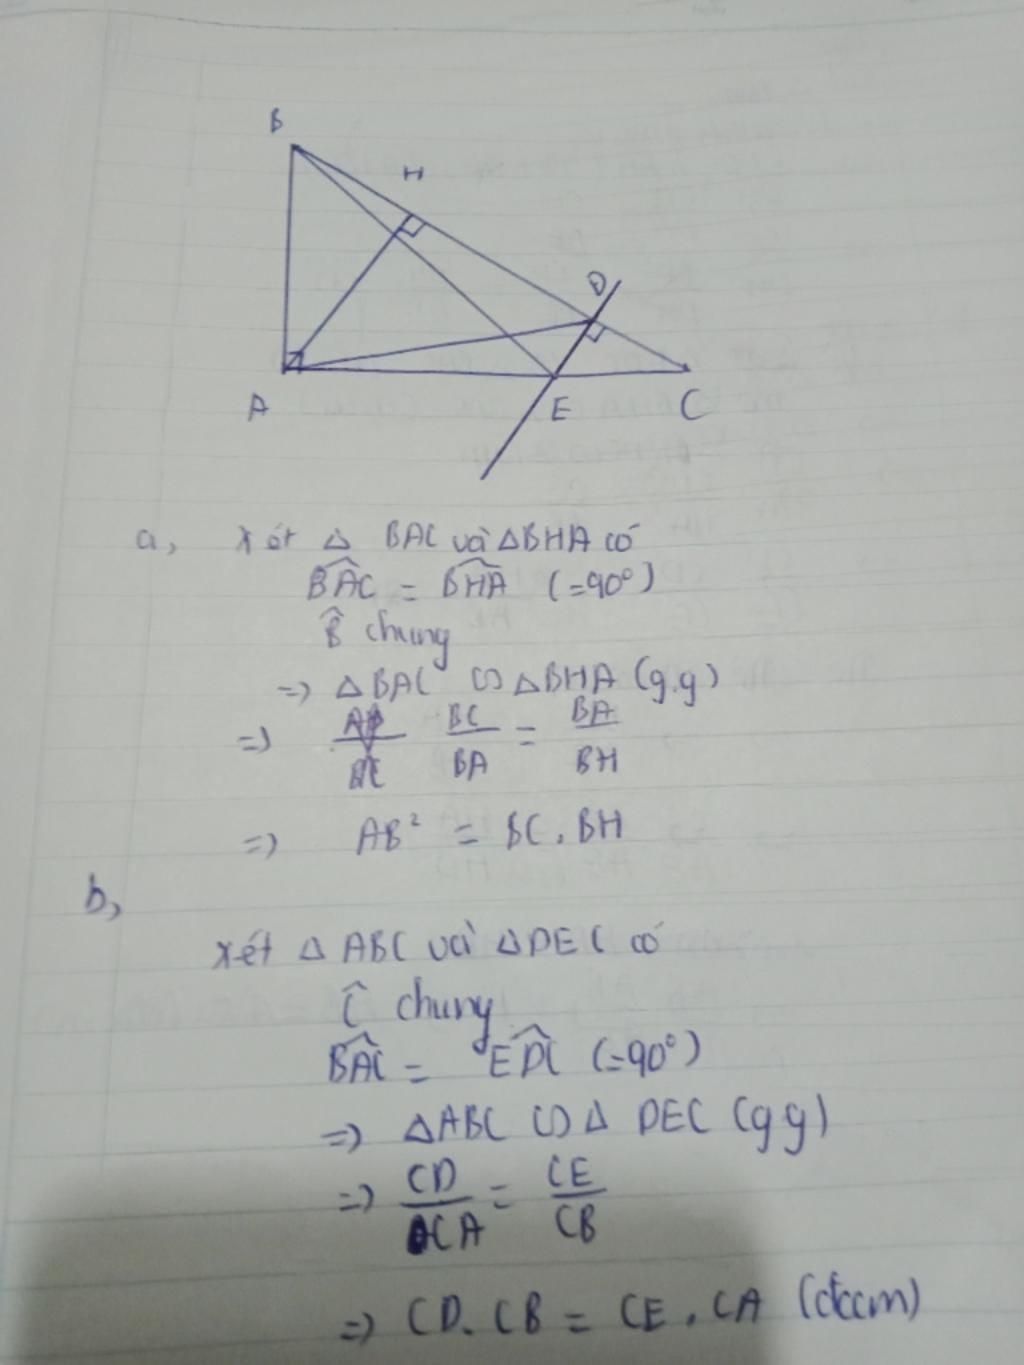 B
H
D
A E C
a, Xét △ BAC và △BHA có
B̂AC = B̂HA (=90°)
B̂ chung
=> △BAC ∽ △BHA (g.g)
=> BC/BA = BA/BH
=> AB² = BC . BH
b,
Xét △ ABC và △DEC có
Ĉ chung
B̂AC = ÊDC (=90°)
=> △ABC ∽ △ DEC (gg)
=> CD/CA = CE/CB
=> CD. CB = CE . CA (đccm)